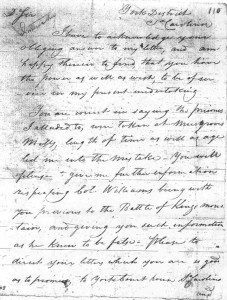 York District
So. Carolina
I have to acknowledge your
obliging answer to my letter, and am
happy therein to find, that you have
the power as well as wish, to be of ser-
vice in my present undertaking
You are correct in saying the prisoners
I alluded to, were taken at Musgroves
Mills, length of time as well as age
led me into the mistake — You will
please to give me further information
respecting Col. Williams being with
you previous to the Battle of Kings moun-
tain, and giving you such information
as he knew to be false — Please to
direct your letters which you are so good
as to promise, to York Court house, S. Carolina
and